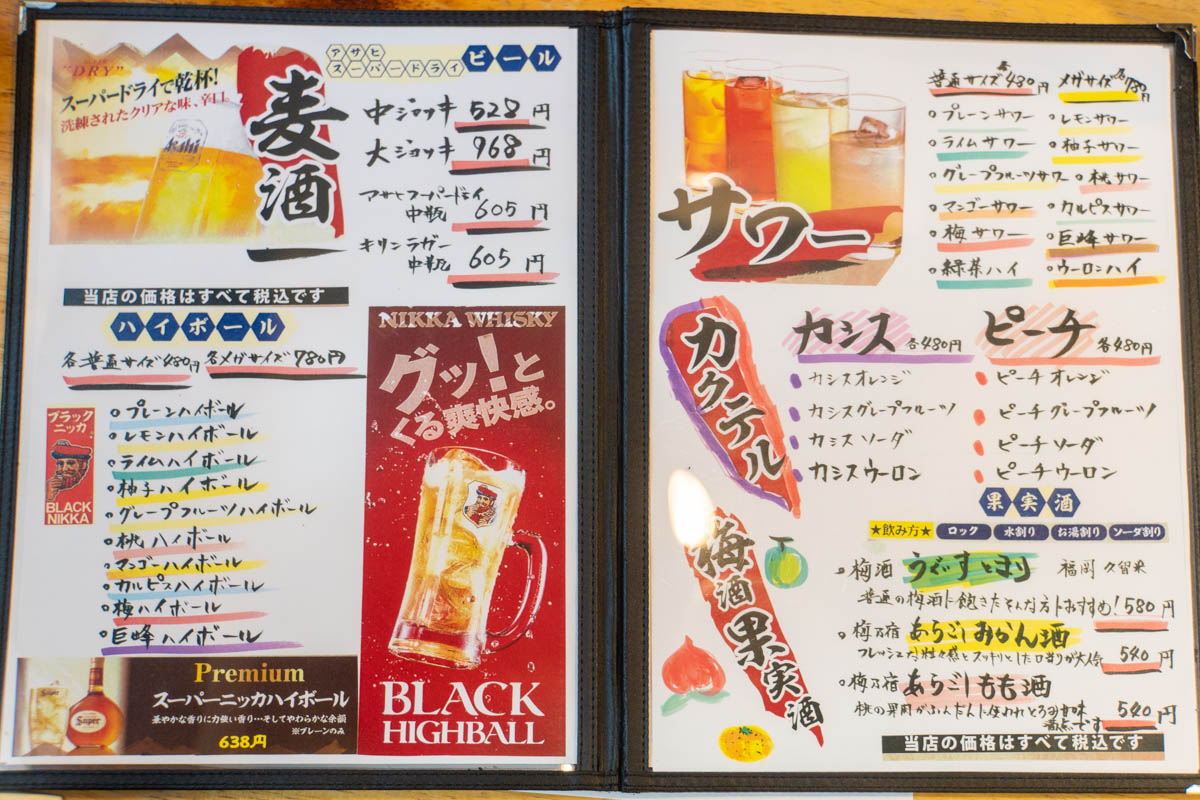 "DRY"
スーパードライで乾杯!
洗練されたクリアな味、辛口
Asahi
麦酒
アサヒ
スーパードライ
ビール
中ジョッキ 528円
大ジョッキ 968円
アサヒスーパードライ
中瓶 605円
キリンラガー
中瓶 605円
当店の価格はすべて税込です
ハイボール
各普通サイズ480円 各メガサイズ780円
ブラック
ニッカ
BLACK
NIKKA
。プレーンハイボール
。レモンハイボール
。ライムハイボール
。柚子ハイボール
。グレープフルーツハイボール
。桃ハイボール
。マンゴーハイボール
。カルピスハイボール
。梅ハイボール
。巨峰ハイボール
Super
Premium
スーパーニッカハイボール
華やかな香りに力強い香り…そしてやわらかな余韻
※プレーンのみ
638円
NIKKA WHISKY
グッ!と
くる爽快感。
BLACK
HIGHBALL
サワー
普通サイズ各480円 メガサイズ各780円
。プレーンサワー 。レモンサワー
。ライムサワー 。柚子サワー
。グレープフルーツサワー 。桃サワー
。マンゴーサワー 。カルピスサワー
。梅サワー 。巨峰サワー
。緑茶ハイ 。ウーロンハイ
カクテル
カシス 各480円
カシスオレンジ
カシスグレープフルーツ
カシスソーダ
カシスウーロン
ピーチ 各480円
ピーチオレンジ
ピーチグレープフルーツ
ピーチソーダ
ピーチウーロン
梅酒果実酒
果実酒
★飲み方★ ロック 水割り お湯割り ソーダ割り
。梅酒 うぐいすとまり 福岡 久留米
普通の梅酒に飽きたそんな方におすすめ! 580円
。梅乃宿 あらごしみかん酒
フレッシュな粒々感とスッキリとした口当りが大人気 540円
。梅乃宿 あらごしもも酒
桃の果肉がふんだんに使われとろける甘味
魅力です 540円
当店の価格はすべて税込です